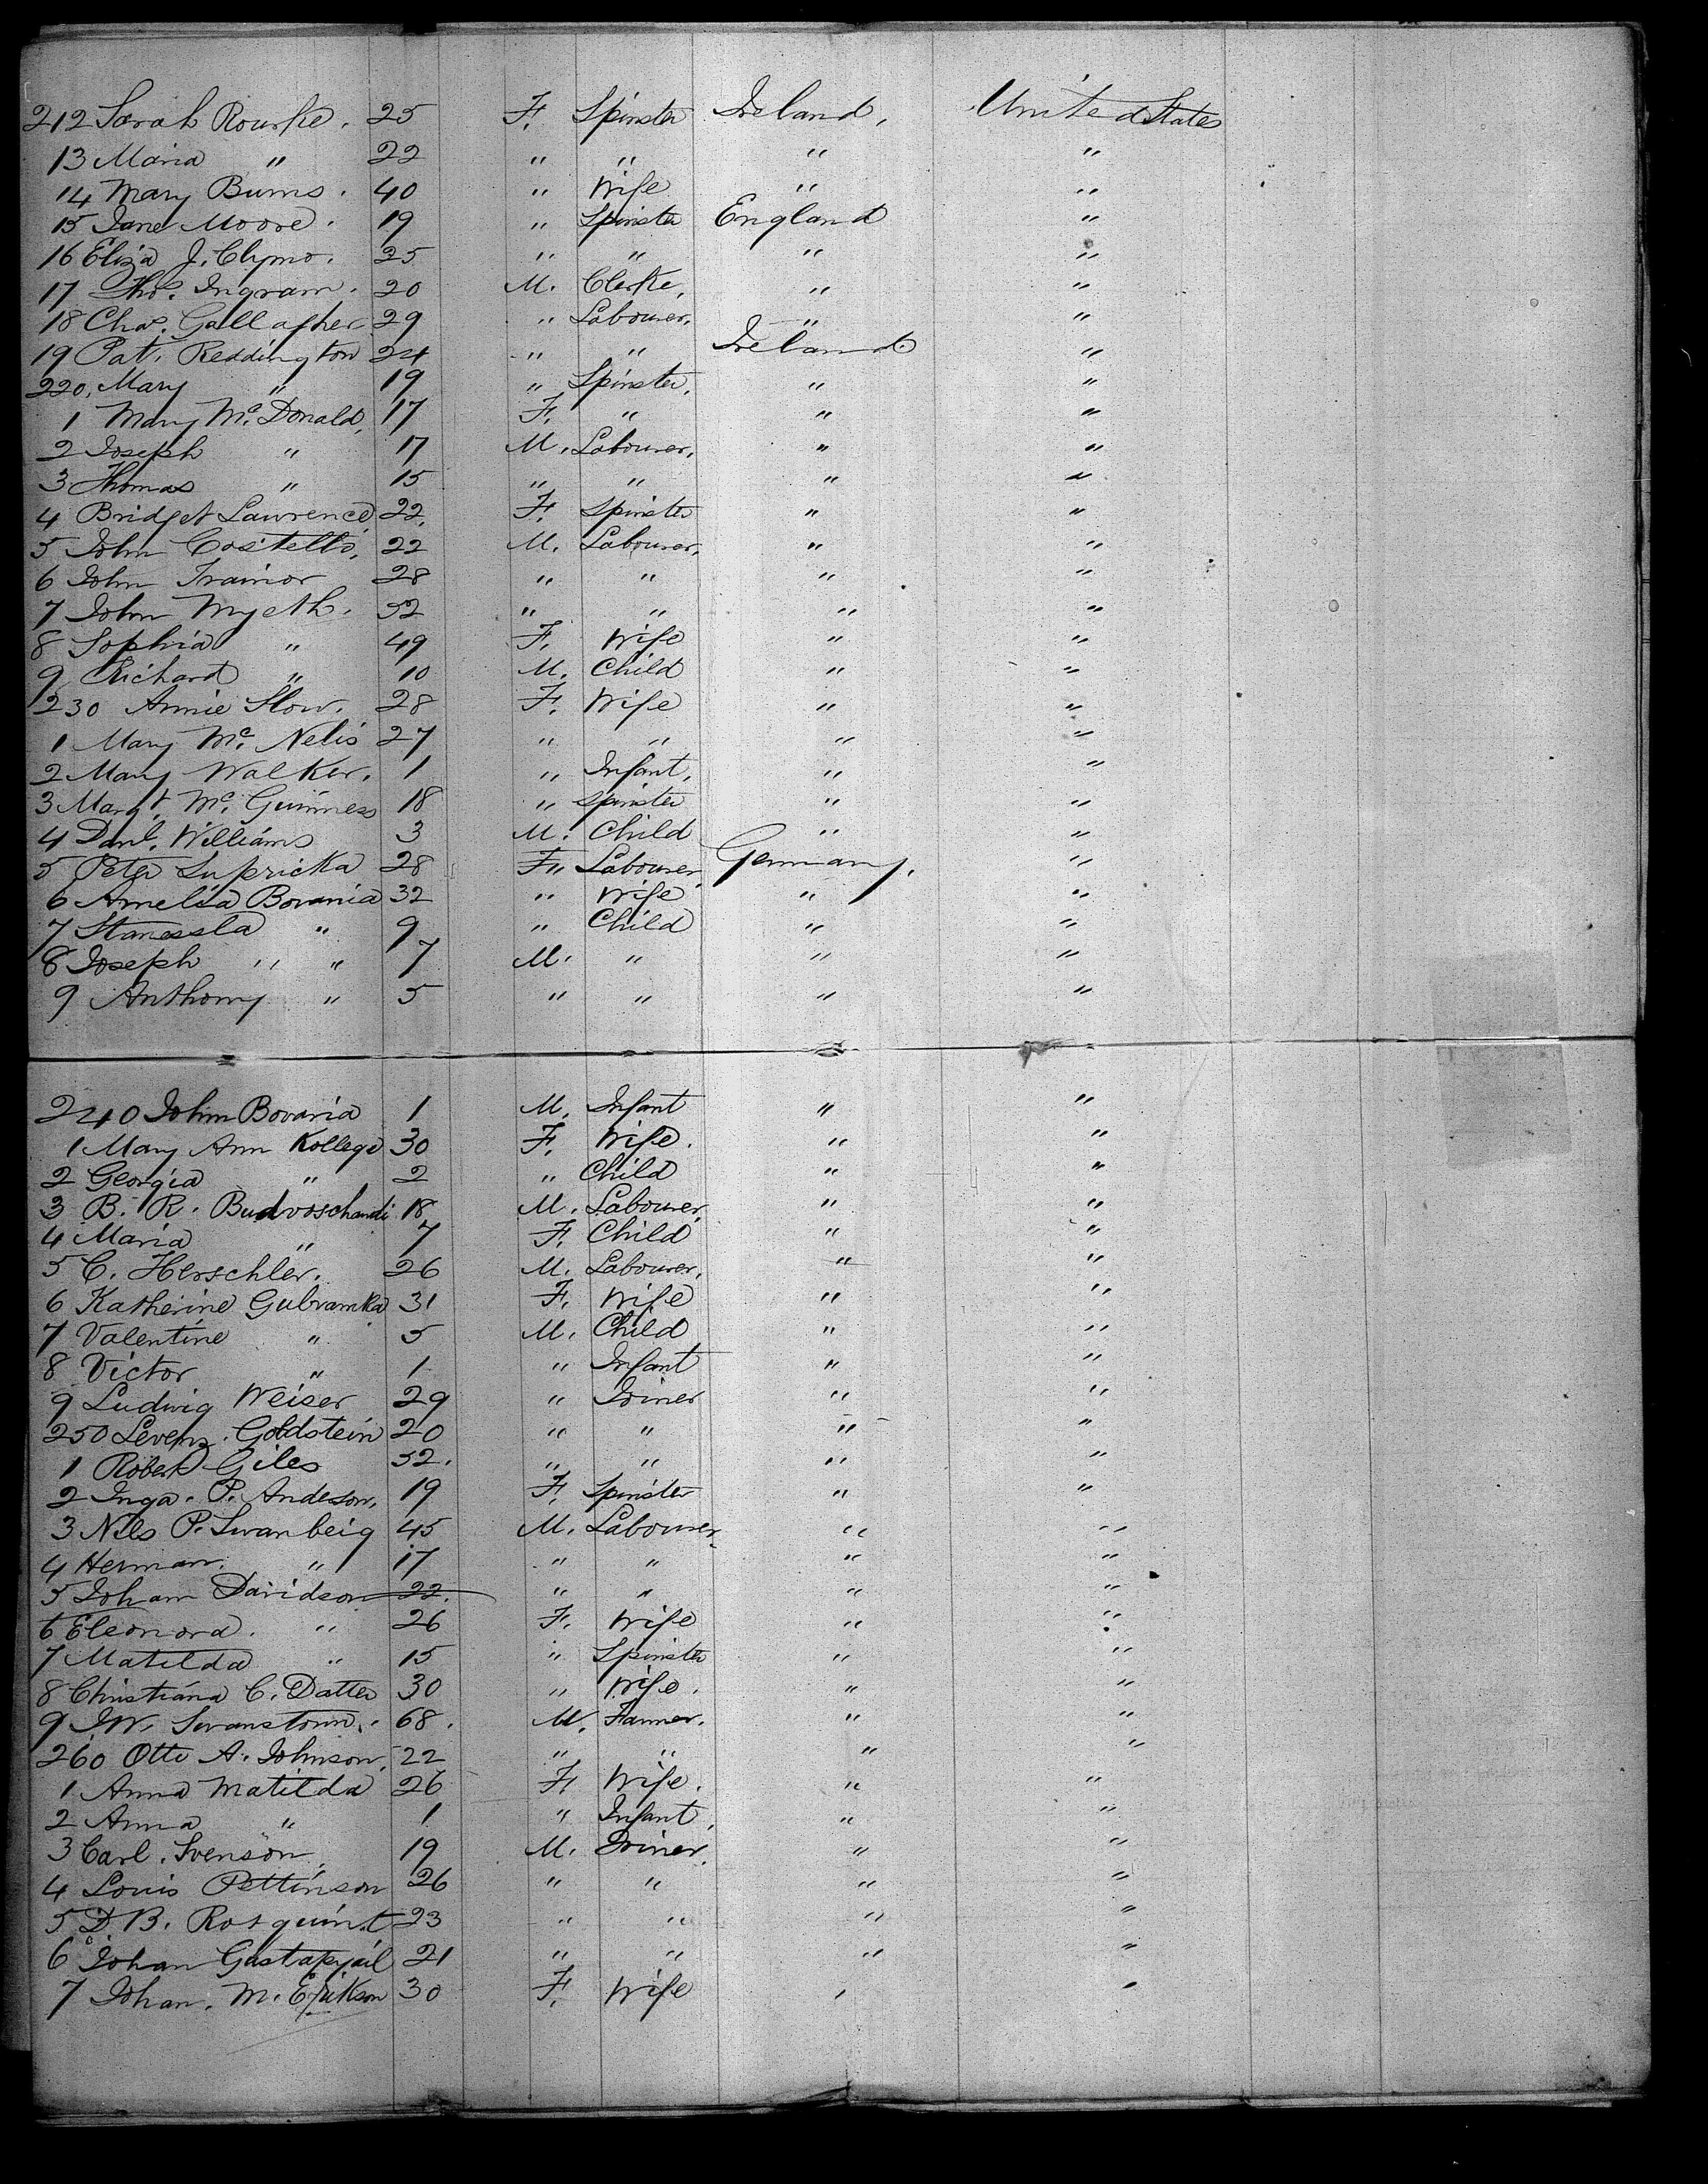 212 Sarah Rourke. 25 F. Spinster Ireland, United States
13 Maria " 22 " " " "
14 Mary Burns. 40 " Wife " "
15 Jane Moore. 19 " Spinster England "
16 Eliza J. Clymo. 25 " " " "
17 Tho⁠s. Ingram. 20 M. Clerke, " "
18 Chas. Gallagher 29 " Labourer, " "
19 Pat. Reddington 24 " " Ireland "
220, Mary " 19 " Spinster, " "
1 Mary Mc. Donald, 17 F. " " "
2 Joseph " 17 M. Labourer, " "
3 Thomas " 15 " " " "
4 Bridget Lawrence 22, F. Spinster " "
5 John Costello, 22 M. Labourer, " "
6 John Trainor 28 " " " "
7 John Wyeth. 52 " " " "
8 Sophia " 49 F. Wife " "
9 Richard " 10 M. Child " "
230 Annie Slow. 28 F. Wife " "
1 Mary Mc. Nelis 27 " " " "
2 Mary Walker. 1 " Infant, " "
3 Margt. Mc. Guinness 18 " Spinster " "
4 Danl. Williams 3 M. Child " "
5 Peter Lupricka 28 F. Labourer, Germany. "
6 Amelia Bovania 32 " Wife " "
7 Stanessla " 9 " Child " "
8 Joseph " " 7 M. " " "
9 Anthony " 5 " " " "
240 John Bovaria 1 M. Infant " "
1 Mary Ann Kollege 30 F. Wife. " "
2 Georgia " 2 " Child " "
3 B. R. Budvoschandi 18 M. Labourer, " "
4 Maria " 7 F. Child " "
5 C. Herschler. 26 M. Labourer, " "
6 Katherine Gubramka 31 F. Wife " "
7 Valentine " 5 M. Child " "
8 Victor " 1 " Infant " "
9 Ludwig Weiser 29 " Joiner " "
250 Levenz. Goldstein 20 " " " "
1 Robert Giles 52. " " " "
2 Inga. P. Andeson, 19 F. Spinster " "
3 Nels P. Swanbeig 45 M. Labourer, " "
4 Herman. " 17 " " " "
5 Joham Davidson 22. " " " "
6 Eleonora. " 26 F. Wife " "
7 Matilda " 15 " Spinster " "
8 Christiana C. Datter 30 " Wife. " "
9 J.W. Swanstorm. 68. M. Farmer. " "
260 Otto A. Johnson, 22 " " " "
1 Anna Matilda 26 F. Wife. " "
2 Anna " 1 " Infant, " "
3 Carl. Svenson, 19 M. Joiner, " "
4 Louis Pettinson 26 " " " "
5 D. B. Rosquint 23 " " " "
6 Johan 21 " " " "
7 Johan. M. Erikson 30 F. Wife " "